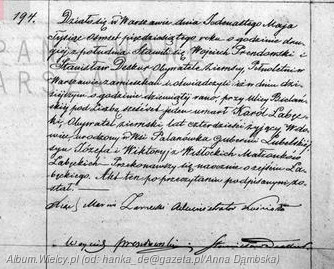 194.
Działo się w Warszawie dnia Jedenastego Maja
Tysiąc osmset pięćdziesiątego roku o godzinie dru-
giej z południa Stawili się Wojciech Prendowski i
Stanisław Deskur Obywatele Ziemscy, Pełnoletni w
Warszawie zamieszkali i oświadczyli iż w dniu dzi-
siejszym o godzinie dziewiątej rano, przy ulicy Bielańskiej
pod Liczbą sześćset jeden umarł Karol Łabę-
cki, Obywatel ziemski lat czterdzieści żyjący Wdo-
wiec, urodzony w Wsi Palanówka Gubernii Lubelskiej
syn Józefa i Wiktoryi z Wisłockich Małżonków
Łabęckich. Przekonawszy się naocznie o zejściu Ła-
będzkiego. Akt ten po przeczytaniu podpisanym zo-
stał.
Administrator
Wojciech Prendowski Stanisław Deskur
Album.Wielcy.pl (od: hanka_de@gazeta.pl/Anna Dąmbska)